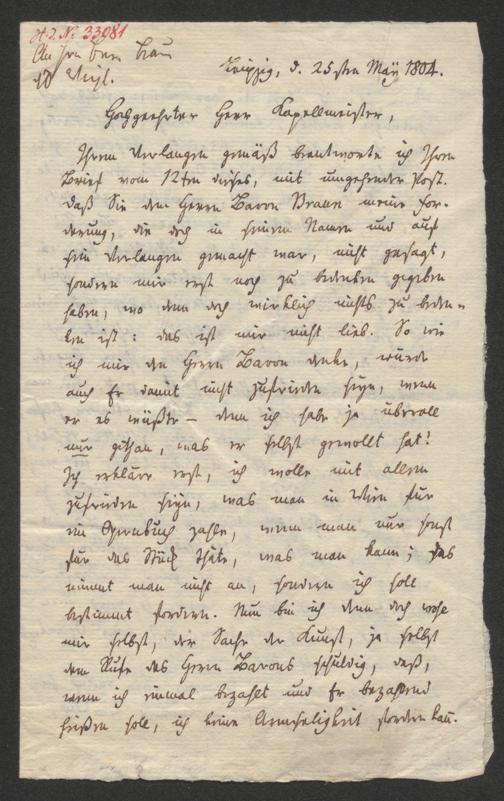 H. I. N. 33081
An Hrn Bar. Braun
Weigl.
Leipzig, d. 25sten May 1804.
Hochgeehrter Herr Kapellmeister,
Ihrem Verlangen gemäß beantworte ich Ihren
Brief vom 12ten dieses, mit umgehender Post.
Daß Sie dem Herrn Baron Braun meine For-
derung, die doch in seinem Namen und auf
sein Verlangen gemacht war, nicht gesagt,
sondern mir erst noch zu bedenken gegeben
haben, wo denn doch wirklich nichts zu beden-
ken ist: das ist mir nicht lieb. So wie
ich mir den Herrn Baron denke, würde
auch Er damit nicht zufrieden seyn, wenn
er es wüßte – denn ich habe ja überall
nur gethan, was er selbst gewollt hat!
Ich erkläre erst, ich wolle mit allem
zufrieden seyn, was man in Wien für
ein Opernbuch zahle, wenn man nur sonst
für das Stück thäte, was man kann; das
nimmt man nicht an, sondern ich soll
bestimmt fordern. Nun bin ich denn doch wohl
mir selbst, der Sache der Kunst, ja selbst
dem Rufe des Herrn Barons schuldig, daß,
wenn ich einmal bezahlt und Er bezahlend
heißen soll, ich keine Armseligkeit fordern kan.